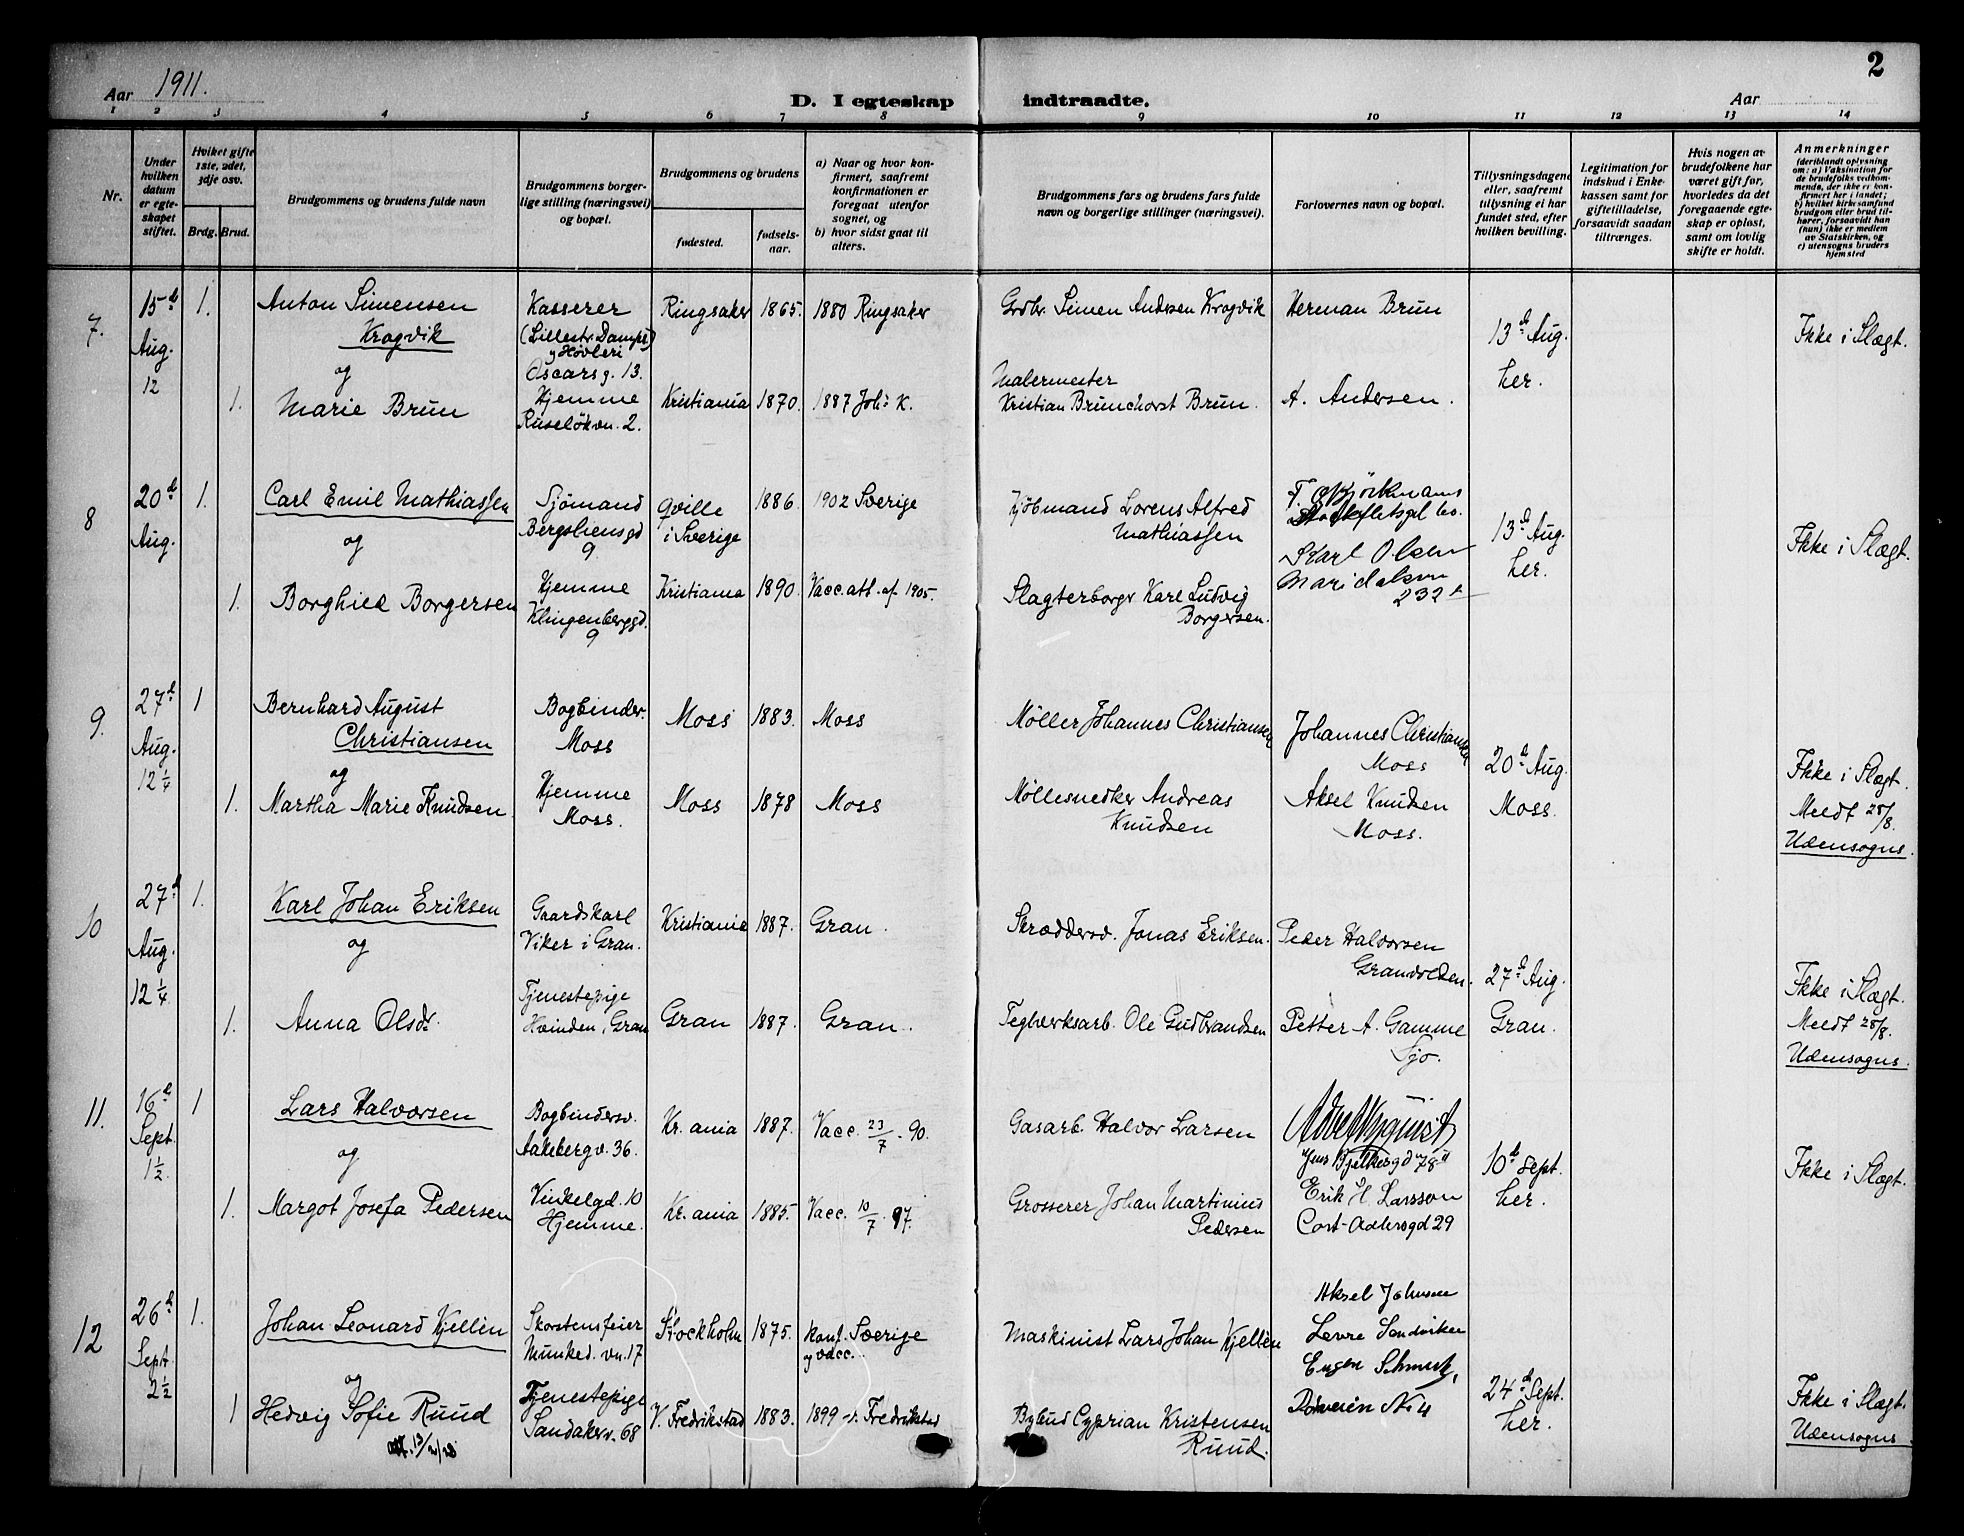 2
Aar 1911.
D. I egteskap indtraadte.
Aar
1 2 3 4 5 6 7 8 9 10 11 12 13 14
Nr.
Under hvilken datum er egteskapet stiftet.
Hviket gifte 1ste, 2det, 3dje osv.
Brdg. Brud.
Brudgommens og brudens fulde navn
Brudgommens borgerlige stilling (næringsvei) og bopæl.
Brudgommens og brudens
fødested.
fødselsaar.
a) Naar og hvor konfirmert, saafremt konfirmationen er foregaat utenfor sognet, og
b) hvor sidst gaat til alters.
Brudgommens fars og brudens fars fulde navn og borgerlige stillinger (næringsvei).
Forlovernes navn og bopæl.
Tillysningsdagene eller, saafremt tillysning ei har fundet sted, efter hvilken bevilling.
Legitimation for indskud i Enkekassen samt for giftetilladelse, forsaavidt saadan tiltrænges.
Hvis nogen av brudefolkene har været gift før, hvorledes da det foregaaende egteskap er opløst, samt om lovlig skifte er holdt.
Anmerkninger (deriblandt oplysning om: a) Vaksination for de brudefolks vedkommende, der ikke er konfirmert her i landet; b) hvilket kirkesamfund brudgom eller brud tilhører, forsaavidt han (hun) ikke er medlem av Statskirken, og c) utensogns bruders hjemsted
7.
15d Aug. 12
1.
Anton Simensen
Kragvik
og
Kasserer
(Lillestr. Dampi)
g Høvleri
Oscarsg. 13.
Ringsaker 1865. 1880 Ringsaker
Grdbr. Simen Andersen Kragvik
Herman Brun
13d Aug.
her.
Ikke i Slægt.
1.
Marie Brun
Hjemme
Ruseløkvn. 2.
Kristiania 1870. 1887 Joh: K.
Malermester
Kristian Brunchorst Brun.
A. Andersen.
8
20d Aug.
1.
Carl Emil Mathiassen
og
Sjömand
Bergsliensgd
9
Qville
i Sverige
1886 1902 Sverige
Kjöbmand Lorens Alfred
Mathiassen
Karl Olsen
232
13d Aug.
her.
Ikke i Slægt.
1.
Borghild Borgersen
Hjemme
Klingenberggd.
9
Kristiania 1890. Vacc. att. af 1905.
Slagterborgr Karl Ludvig
Borgersen.
9.
27d Aug. 12 1/4
1
Bernhard August
Christiansen
og
Bogbinder.
Moss
Moss 1883. Moss
Møller Johannes Christiansen
Johannes Christiansen
Moss
20d Aug.
Moss.
Ikke i Slægt.
Meldt 28/8.
Udensogns.
1.
Martha Marie Knudsen
Hjemme
Moss.
Moss 1878 Moss
Møllesnedker Andreas
Knudsen
Aksel Knudsen
Moss.
10
27d Aug. 12 1/4
1.
Karl Johan Eriksen
og
Gaardskarl
Viker i Gran.
Kristiania 1887. Gran.
Skræddersv. Jonas Eriksen.
Peder Halvorsen
Granvolden.
27d Aug.
Gran.
Ikke i Slægt.
Meldt 28/8.
Udensogns.
1.
Anna Olsdr.
Tjenestepige
Hvinden, Gran
Gran 1887. Gran.
Teglverksarb. Ole Gudbrandsen
Petter A. Gamme
Sjo.
11.
16d Sept. 1 1/2
1
Lars Halvorsen
og
Bogbindersv.
Aakebergv. 36.
Kr.ania 1887. Vacc. 23/7 - 90.
Gasarb. Halvor Larsen
Jens Bjelkesgd 78 II
10d Sept.
her.
Ikke i Slægt.
1.
Margot Josefa Pedersen
Vinkelgd. 10
Hjemme.
Kr.ania 1885 Vacc. 10/7. 97.
Grosserer Johan Martinius
Pedersen
Erik H Larsson
Cort-Adlersgd 29
12
26d Sept. 2 1/2
1.
Johan Leonard Kjellèn
og
Skorstensfeier
Munked. vn. 17
Stockholm 1875. Konf. Sverige
og vacc.
Maskinist Lars Johan Kjellèn
Aksel Johnsen
Søvre Sandviken
Eugen Schmidt,
24d Sept.
her.
Ikke i Slægt.
Udensogns
1
Hedvig Sofie Ruud
Tjenestepige
Sandakerv. 68
V. Fredrikstad 1883. 1899 - v. Fredrikstad
Bybud Cyprian Kristensen
Ruud.
att. 13/2/28